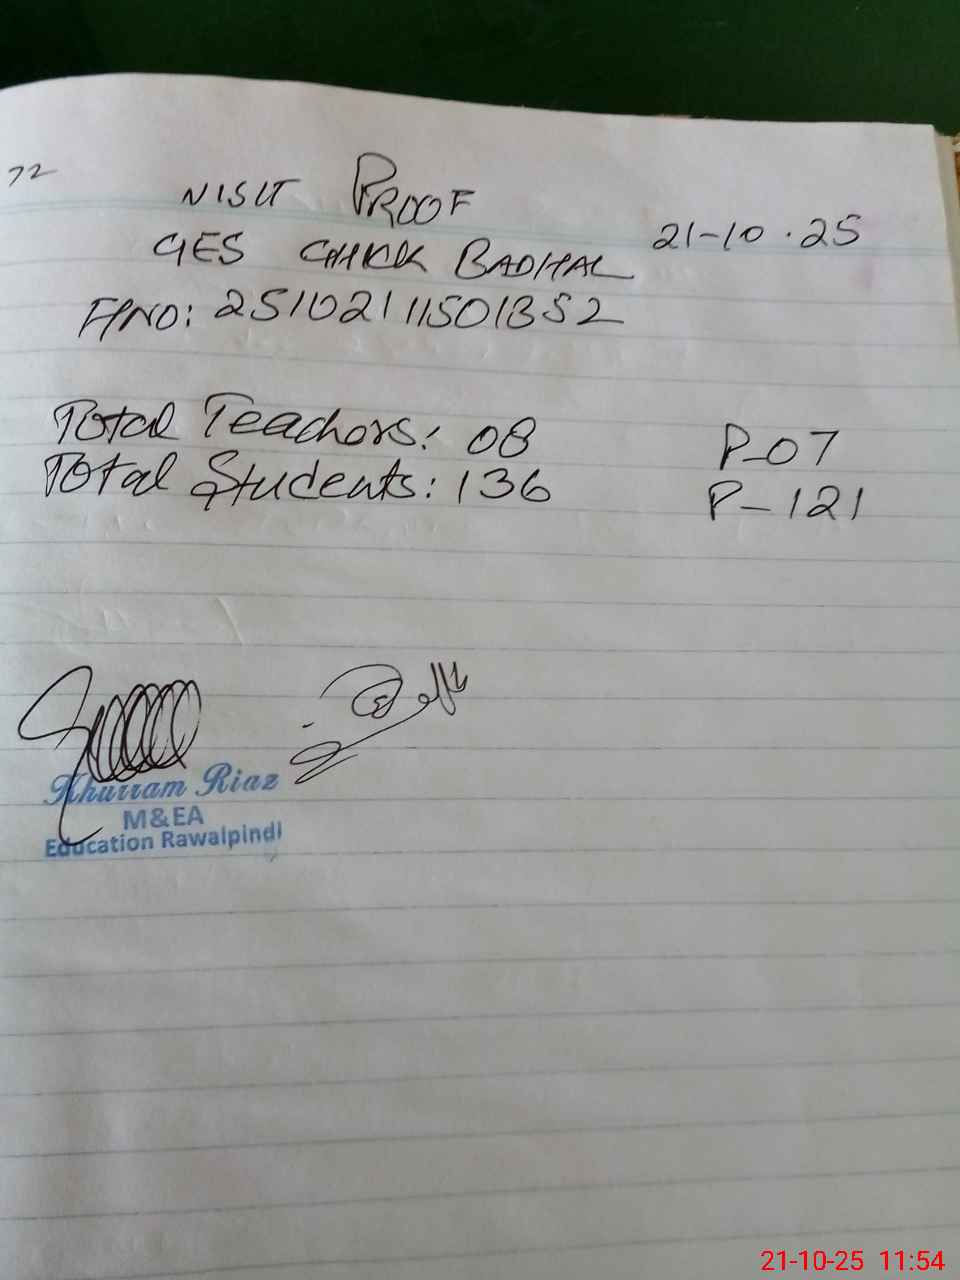 72
VISIT PROOF
GES CHHCK BADHAL 21-10.25
F/NO: 25102111501352
Total Teachers: 08 P-07
Total Students: 136 P-121
Khurram Riaz
M&EA
Education Rawalpindi
21-10-25 11:54